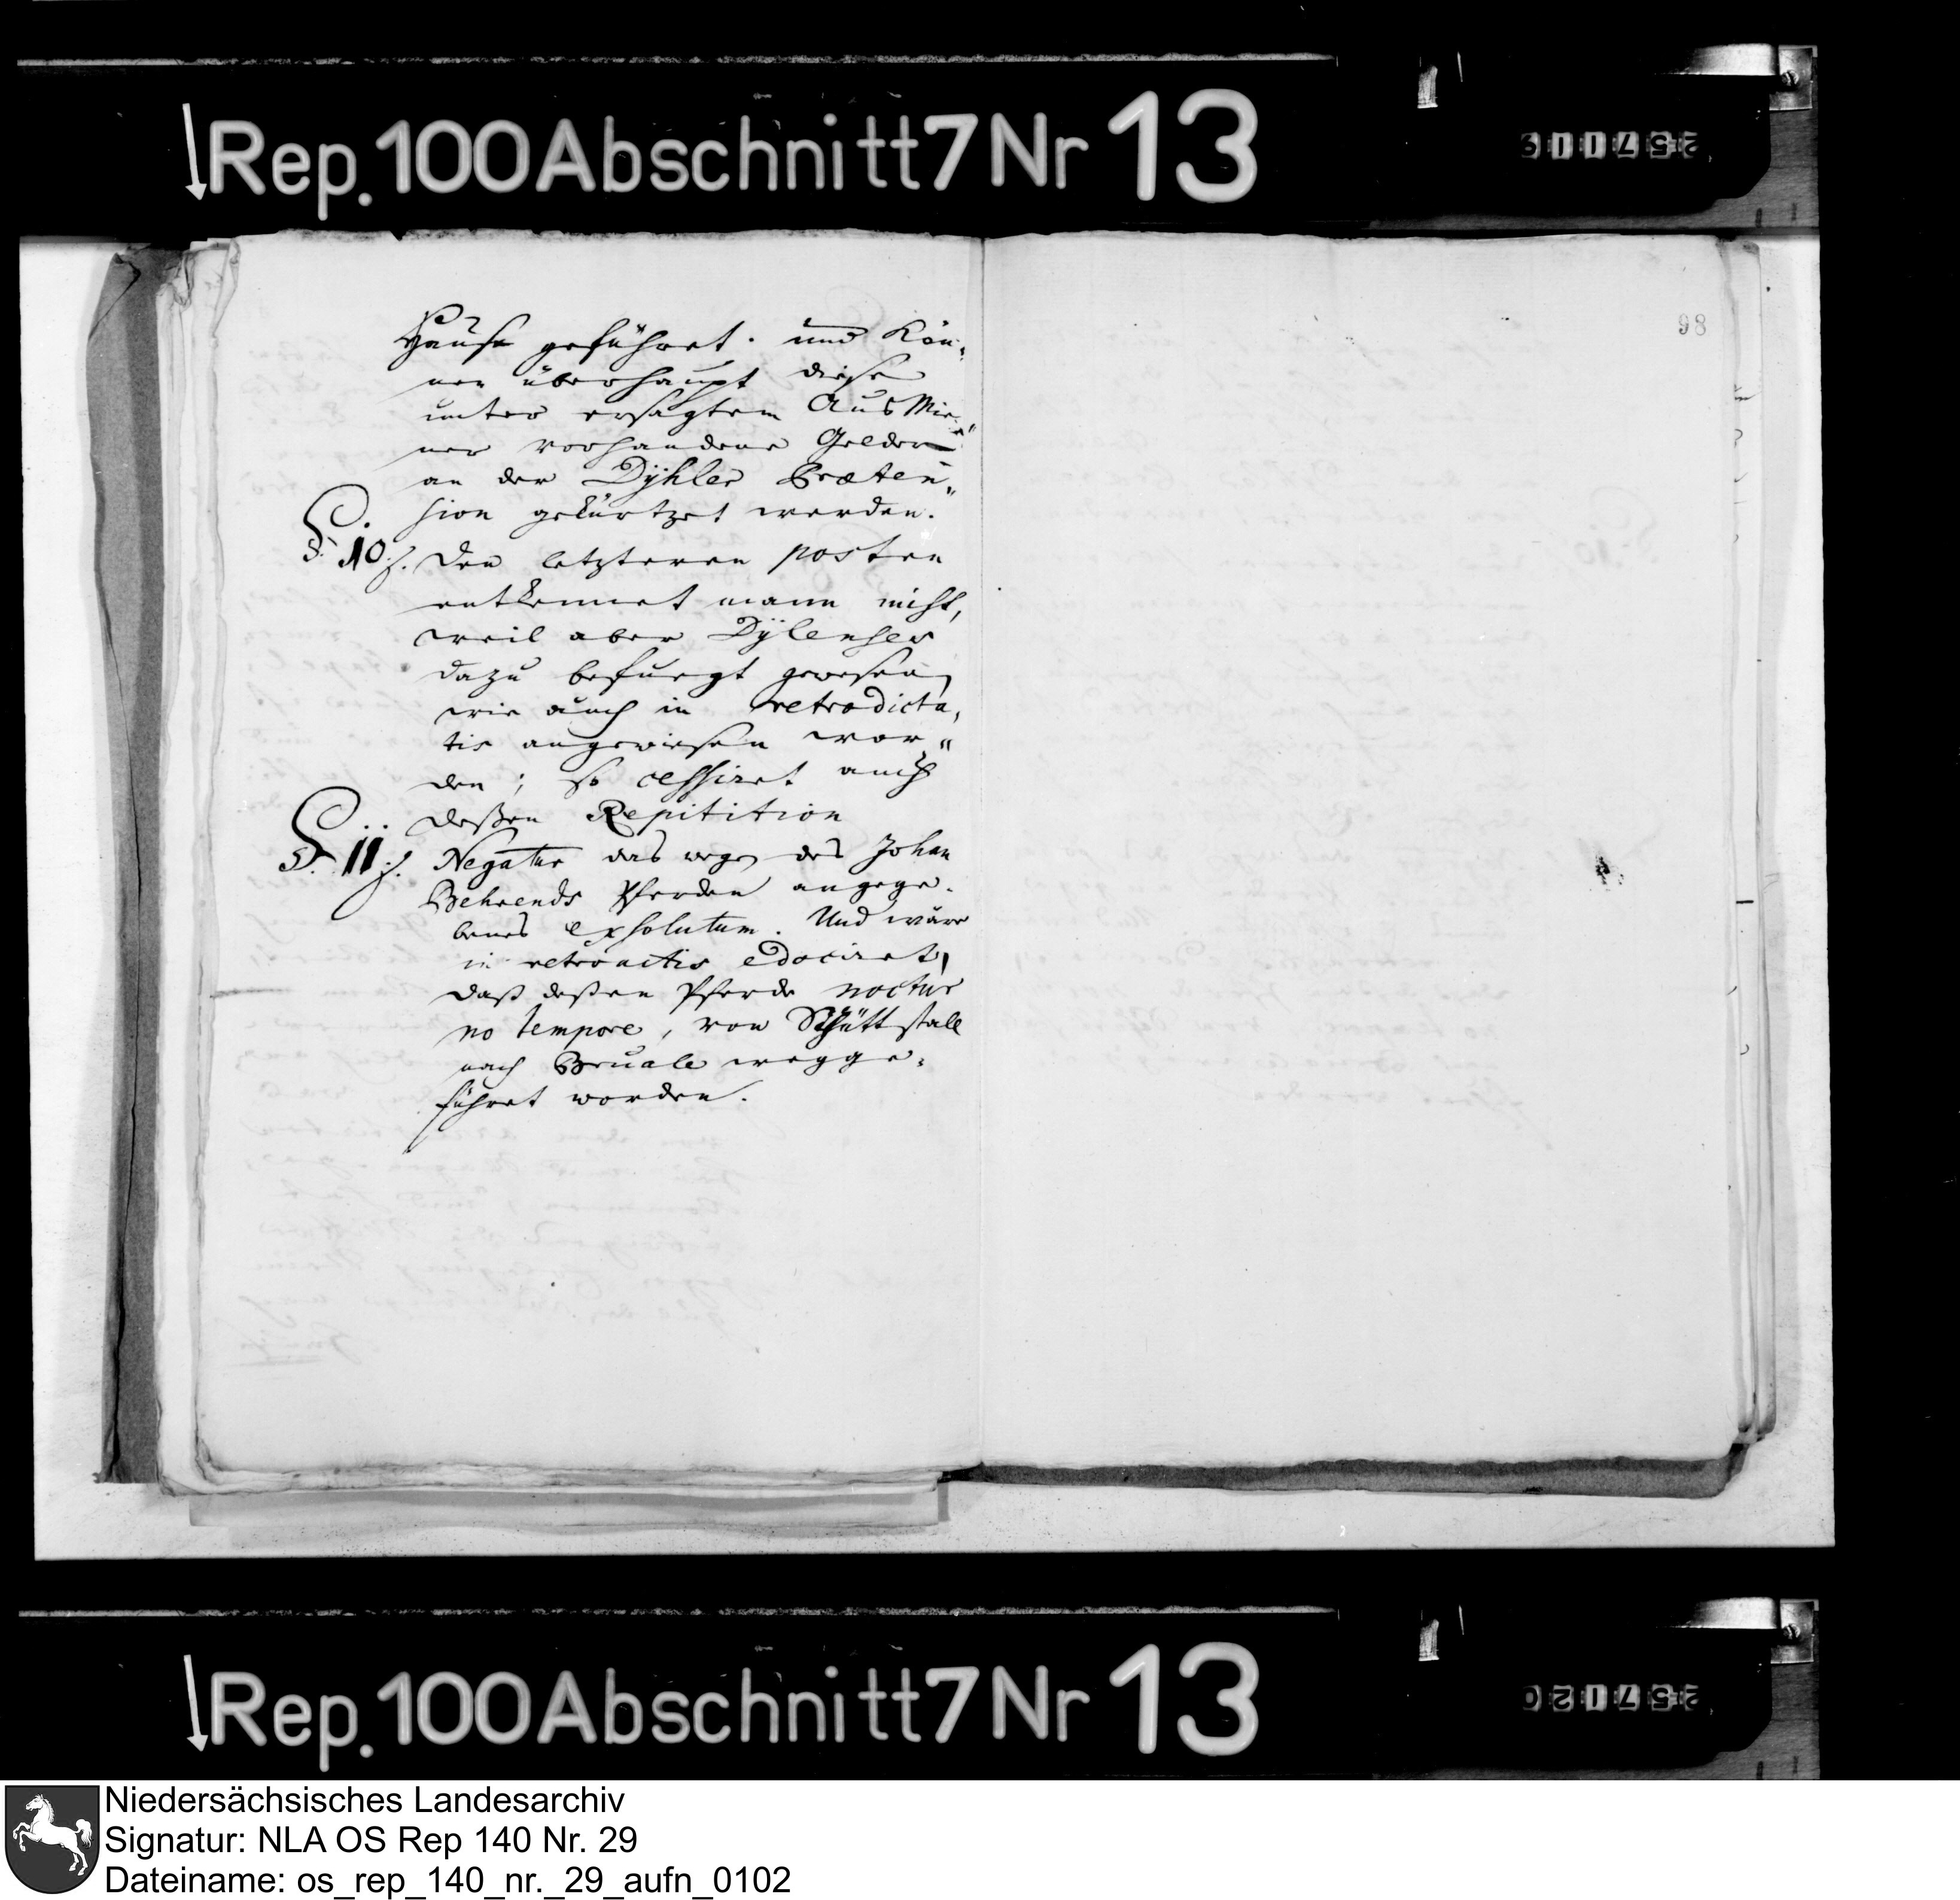 Rep. 100 Abschnitt 7 Nr 13
257119
98
Hause geführet. und Kön„
nen überhaupt diese
unter ersagtem Aus Mie„
ner vorhandene Gelder
an der Dÿhler Præten„
sion gekürtzet werden.
§. 10. Den letzteren posten
entkennet mann nicht,
weil aber Dÿlenser
dazu befuegt gewesen,
wie auch in retrodicta„
tis angewiesen wor„
den; so cessiret auch
deßen Repitition
§. 11. Negatur das wegen des Johan
Behrends Pferden angege„
benes exsolutum. Und wäre
in retroactis edociret,
daß deßen Pferde noctur
no tempore, von Schüttstall
nach Bruale wegge„
führet worden.
Rep. 100 Abschnitt 7 Nr 13
257120
Niedersächsisches Landesarchiv
Signatur: NLA OS Rep 140 Nr. 29
Dateiname: os_rep_140_nr._29_aufn_0102